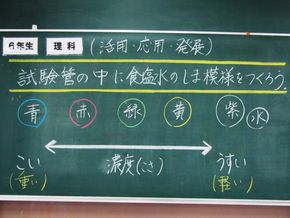 6年生 理科 (活用・応用・発展)
試験管の中に食塩水のしま模様をつくろう。
青 赤 緑 黄 紫 水
こい 濃度(さ) うすい
(重い) (軽い)